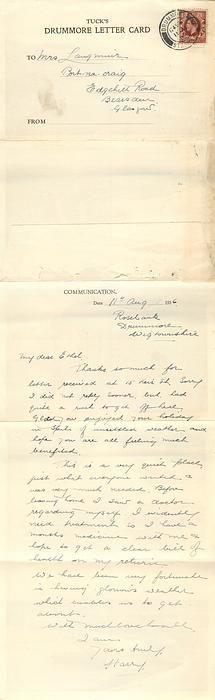 TUCK'S
DRUMMORE LETTER CARD
TO Mrs Langmuir
Port-na-craig
Edgehill Road
Bearsden
Glasgow.
FROM
COMMUNICATION.
Date 11th Aug 1936
Rosebank
Drummore
Wigtownshire
My dear Ethel.
Thanks so much for
letter received at 15 Sorry
I did not reply sooner, but had
quite a rush to get off here.
you enjoyed your holiday
in spite of unsettled weather and
hope you are all feeling much
benefited.
This is a very quiet place,
just what everyone wanted &
was very much needed. Before
leaving home I saw a doctor
regarding myself. I evidently
need treatment so I have a
months medicine with me &
hope to get a clean bill of
health on my return.
We have been very fortunate
in having glorious weather
which enables us to get
about.
With much love to all.
I am
Yours truly,
Harry